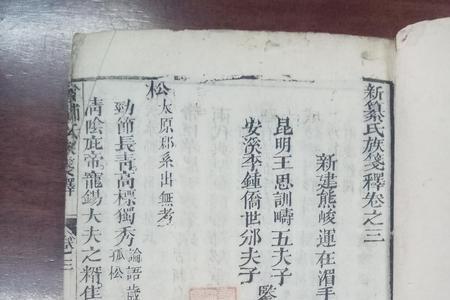 新纂氏族箋釋卷之三
新建熊峻運在湄手
昆明王思訓疇五夫子
安溪李鍾僑世邠夫子
鑒
松 太原郡系出無考
勁節長青高標獨秀 論語歲
孤松
清陰庇帝寵錫大夫之稱隹
箋釋
卷之三